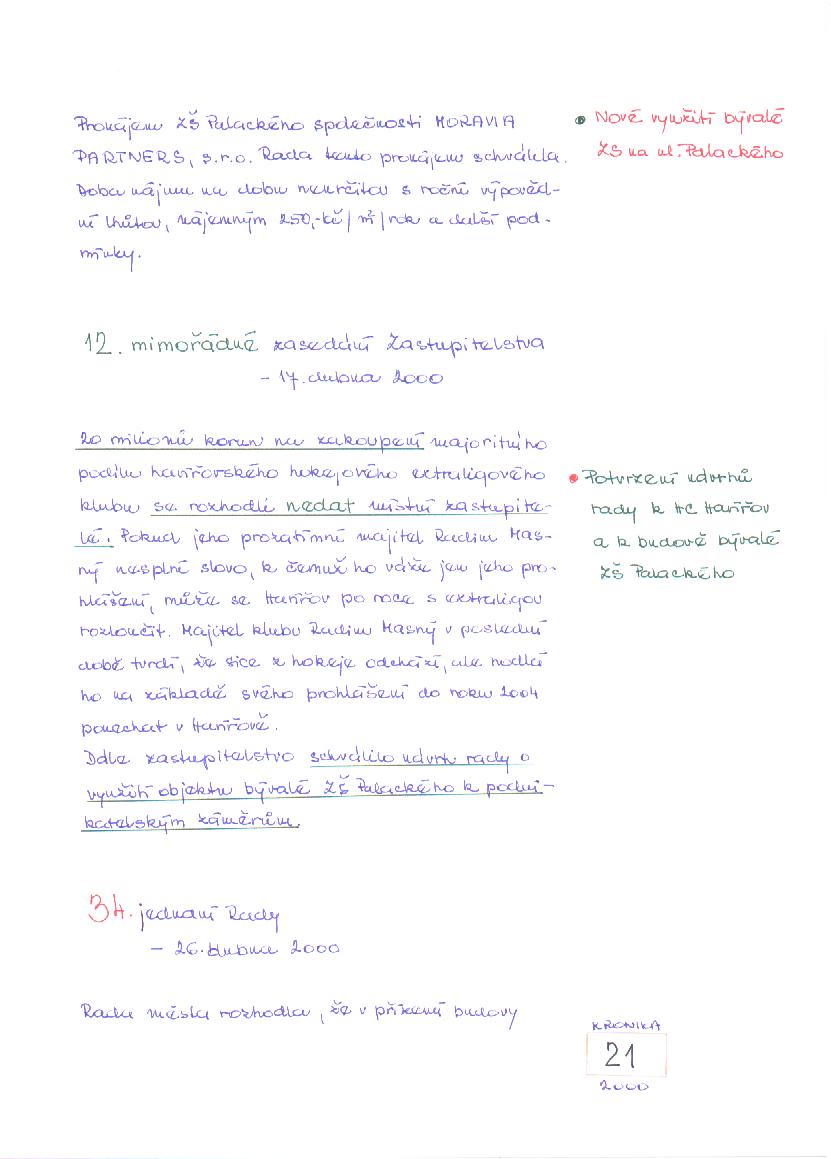 Pronájem ZŠ Palackého společnosti MORAVIA
PARTNERS, s.r.o. Rada tento pronájem schválila.
Doba nájmu na dobu neurčitou s roční výpověd-
ní lhůtou, nájemným 250,-kč/m²/rok a další pod-
mínky.
• Nové využití bývalé
ZŠ na ul. Palackého
12. mimořádné zasedání Zastupitelstva
- 17. dubna 2000
20 milionů korun na zakoupení majoritního
podílu havířovského hokejového extraligového
klubu se rozhodli nedat místní zastupite-
lé. Pokud jeho prozatímní majitel Radim Mas-
ný nesplní slovo, k čemuž ho váže jen jeho pro-
hlášení, může se Havířov po roce s extraligou
rozloučit. Majitel klubu Radim Masný v poslední
době tvrdí, že sice z hokeje odchází, ale hodlá
ho na základě svého prohlášení do roku 2004
ponechat v Havířově.
Dále zastupitelstvo schválilo návrh rady o
využití objektu bývalé ZŠ Palackého k podni-
katelským záměrům.
• Potvrzení návrhů
rady k HC Havířov
a k budově bývalé
ZŠ Palackého
34. jednání Rady
- 26. dubna 2000
Rada města rozhodla, že v přízemí budovy
KRONIKA
21
2000